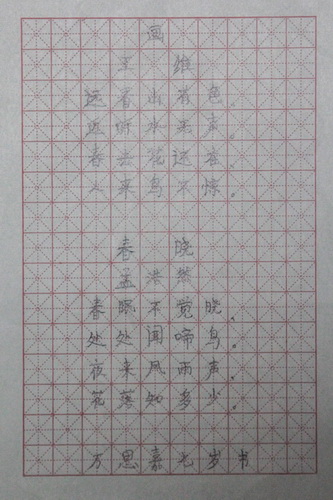 画
王 维
远看山有色。
近听水无声。
春去花还在
人来鸟不惊。
春 晓
孟浩然
春眠不觉晓。
处处闻啼鸟。
夜来风雨声。
花落知多少。
方思嘉七岁书